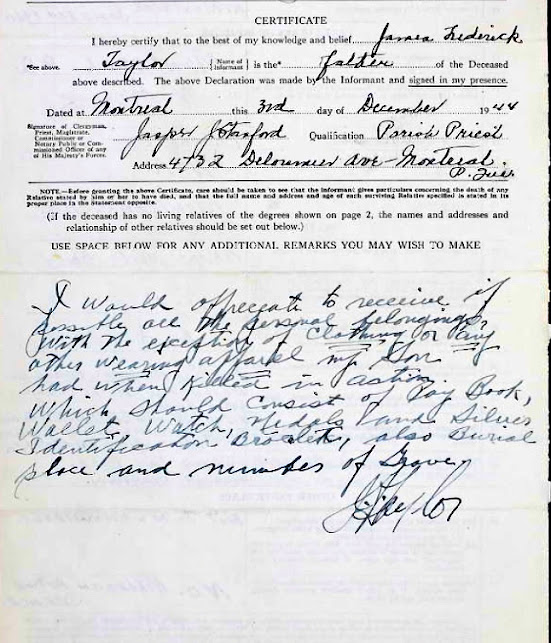 CERTIFICATE
I hereby certify that to the best of my knowledge and belief James Frederick
*See above. Taylor {Name of Informant} is the* Father of the Deceased
above described. The above Declaration was made by the Informant and signed in my presence.
Dated at Montreal this 3rd day of December 1944
Signature of Clergyman, Priest, Magistrate, Commissioner or Notary Public or Commissioned Officer of any of His Majesty's Forces. Jasper J Stanford Qualification Parish Priest
Address 4732 Delorimier Ave Montreal.
P. Que.
NOTE.—Before granting the above Certificate, care should be taken to see that the Informant gives particulars concerning the death of any
Relative stated by him or her to have died, and that the full name and address and age of each surviving Relative specified is stated in its
proper place in the Statement opposite.
(If the deceased has no living relatives of the degrees shown on page 2, the names and addresses and
relationship of other relatives should be set out below.)
USE SPACE BELOW FOR ANY ADDITIONAL REMARKS YOU MAY WISH TO MAKE
I would appreciate to receive if
possibly all the personal belongings,
with the exception of clothing or any
other wearing apparel my Son
had when killed in action.
Which should consist of Pay Book,
Wallet, Watch, Medals and Silver
Identification Bracelet, also Burial
place and number of Grave.
J F Taylor